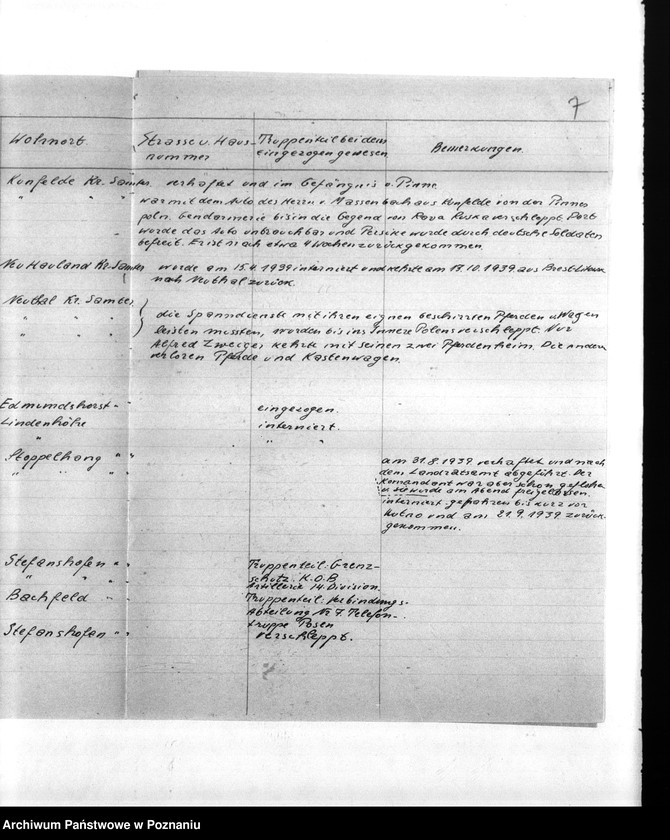 7
Wohnort. Strasse u. Haus- Truppenteil bei dem Bemerkungen.
nummer eingezogen gewesen
Kunfelde Kr. Samter. verhaftet und im Gefängnis v. Pinne
" " " war mit dem Auto des Herrn v. Massenbach aus Kunfelde von der Pinnes
poln. Gendarmerie bis in die Gegend von Rava Ruska verschleppt. Dort
wurde das Auto unbrauchbar und Persike wurde durch deutsche Soldaten
befreit. Er ist nach etwa 4 Wochen zurückgekommen.
Neu Hauland Kr. Samter wurde am 15.4.1939 interniert und kehrte am 13.10.1939 aus
nach Neuthal zurück.
Neuthal Kr. Samter
" " " die Spanndienste mit ihren eignen beschirrten Pferden u Wagen
" " leisten mussten, wurden bis ins Innere Polens verschleppt. Nur
Alfred Zweiger kehrte mit seinen zwei Pferden heim. Die andern
verloren Pferde und Kastenwagen.
Edmundshorst " " eingezogen.
Lindenhöhe interniert.
" " "
Stoppelhang " " am 31.8.1939 verhaftet und nach
" " " " dem Landratsamt abgeführt. Der
Komandant war aber schon geflohen
u. so wurde am Abend freigelassen.
interniert gefahren bis kurz vor
Kutno und am 21.9.1939 zurück-
gekommen.
Stefanshofen " " Truppenteil: Grenz-
" " " schutz: K.O.B.
Artillerie 14. Division.
Bachfeld " Truppenteil: Verbindungs-
Abteilung Nr 7 Telefon-
truppe Posen
Stefanshofen " " verschleppt.
Archiwum Państwowe w Poznaniu